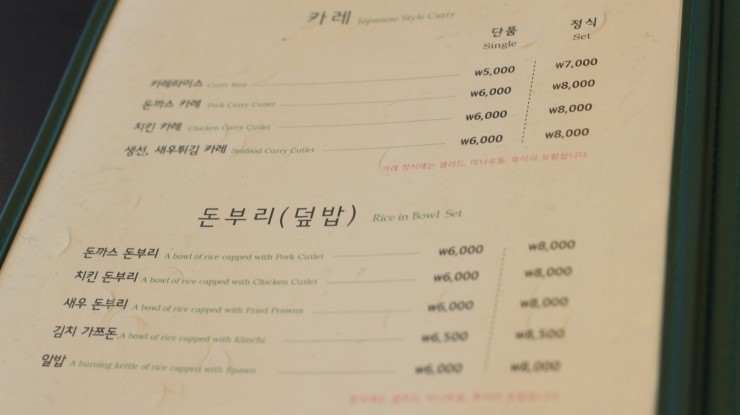 카레 Japanese Style Curry
단품 정식
Single Set
카레라이스 Curry Rice ₩5,000 ₩7,000
돈까스 카레 Pork Curry Cutlet ₩6,000 ₩8,000
치킨 카레 Chicken Curry Cutlet ₩6,000 ₩8,000
생선, 새우튀김 카레 Seafood Curry Cutlet ₩6,000 ₩8,000
카레 정식에는 샐러드, 미니우동, 후식이 포함됩니다
돈부리(덮밥) Rice in Bowl Set
돈까스 돈부리 A bowl of rice capped with Pork Cutlet ₩6,000 ₩8,000
치킨 돈부리 A bowl of rice capped with Chicken Cutlet ₩6,000 ₩8,000
새우 돈부리 A bowl of rice capped with Fried Prawns ₩6,000 ₩8,000
김치 가쯔돈 A bowl of rice capped with Kimchi ₩6,500 ₩8,500
알밥 A burning kettle of rice capped with Spawn ₩6,000 ₩8,000
정식에는 샐러드, 미니우동, 후식이 포함됩니다